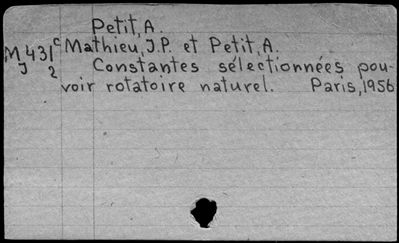 Petit, A.
M 431c Mathieu, J.P. et Petit, A.
J 2 Constantes sélectionnées pou-
voir rotatoire naturel. Paris, 1956